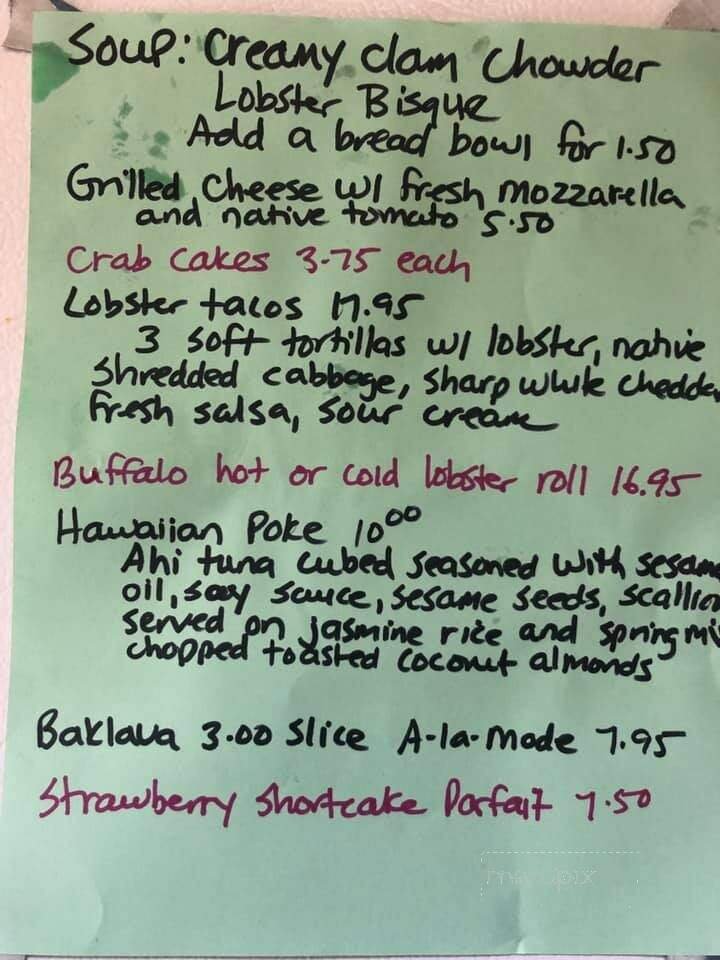 Soup: Creamy clam chowder
Lobster Bisque
Add a bread bowl for 1.50
Grilled Cheese w/ fresh mozzarella
and native tomato 5.50
Crab Cakes 3.75 each
Lobster tacos 17.95
3 soft tortillas w/ lobster, native
Shredded cabbage, sharp white chedda
fresh salsa, sour cream
Buffalo hot or cold lobster roll 16.95
Hawaiian Poke 10.00
Ahi tuna cubed seasoned with sesame
oil, soy sauce, sesame seeds, scallion
served on jasmine rice and spring mi
chopped toasted coconut almonds
Baklava 3.00 Slice A-la-Mode 7.95
Strawberry Shortcake Parfait 7.50